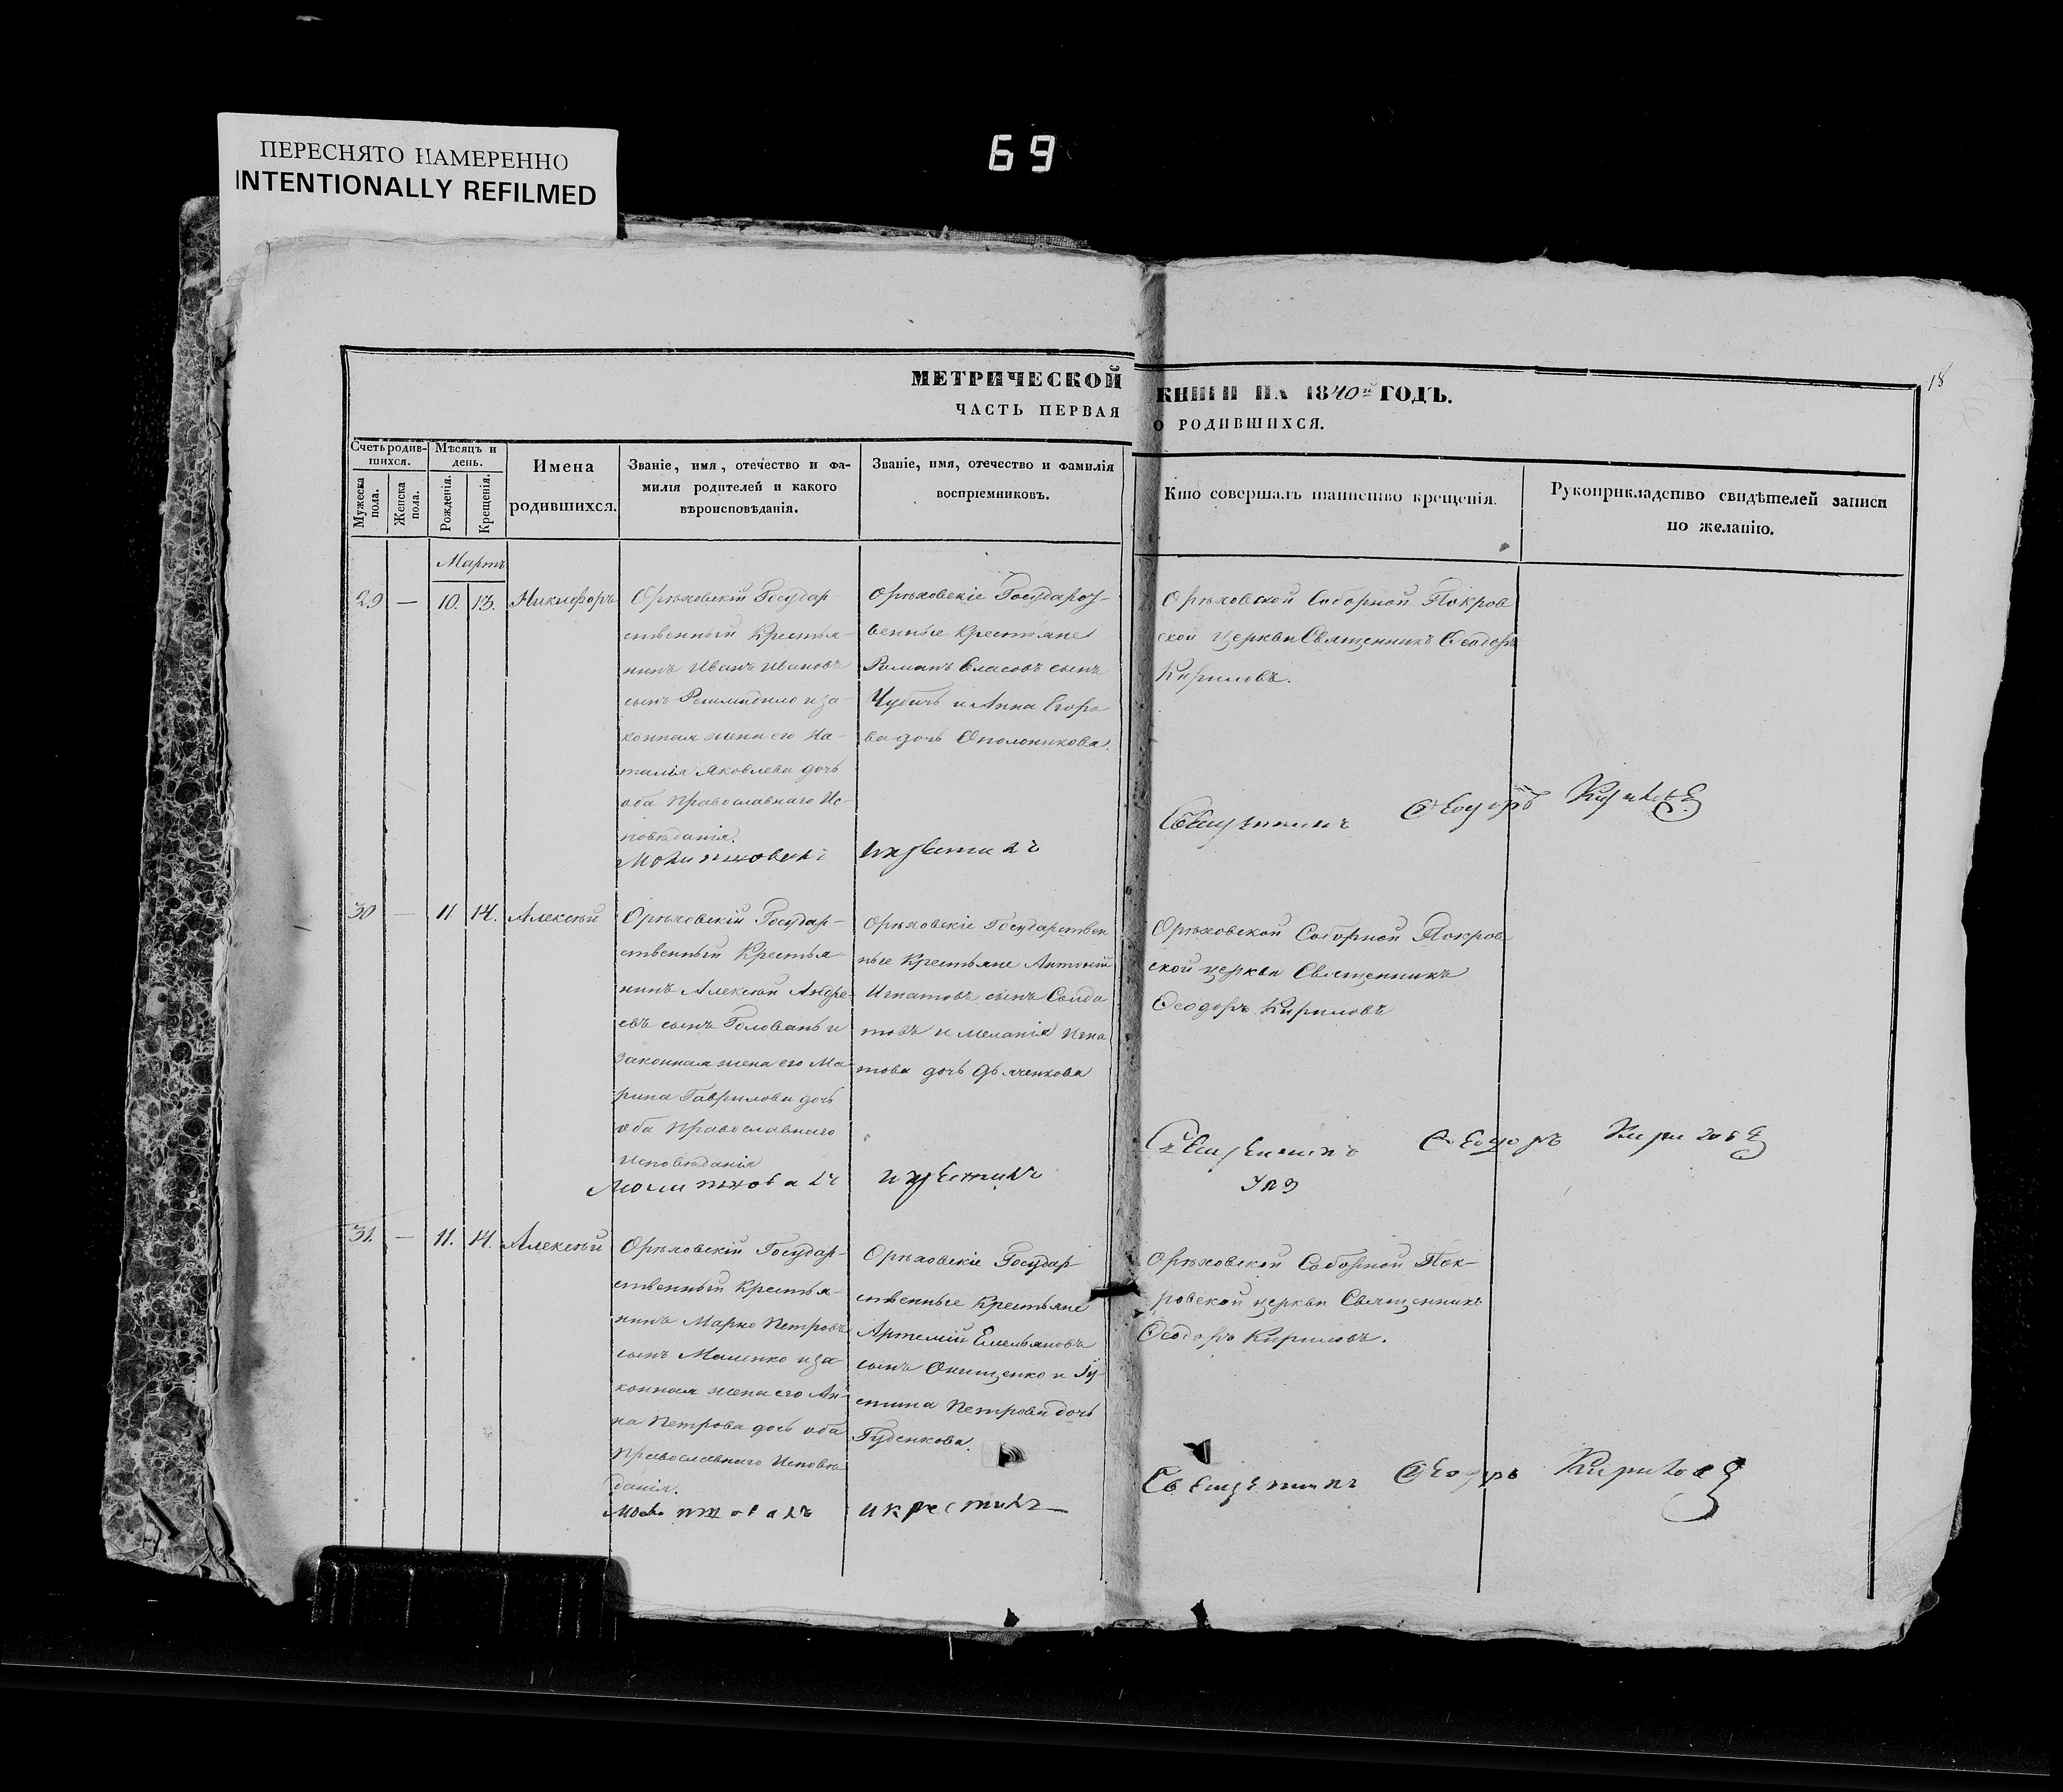 ПЕРЕСНЯТО НАМЕРЕННО
INTENTIONALLY REFILMED
69
18
МЕТРИЧЕСКОЙ КНИГИ НА 1840й ГОДЪ.
ЧАСТЬ ПЕРВАЯ О РОДИВШИХСЯ.
Счетъ родив-
шихся.
Мужеска пола.
Женска пола.
Мѣсяцъ и
день.
Рожденія.
Крещенія.
Имена
родившихся.
Званіе, имя, отечество и фа-
милія родителей и какого
вѣроисповѣданія.
Званіе, имя, отечество и фамилія
воспріемниковъ.
Кто совершалъ таинство крещенія.
Рукоприкладство свидѣтелей записи
по желанію.
Мартъ
29 — 10. 13. Никифоръ
Орѣховскій Государ-
ственный Крестья-
нинъ Иванъ Ивановъ
сынъ и за-
конная жена его На-
талія Яковлева дочь
оба Православнаго Ис-
повѣданія.
Молитвовалъ
Орѣховскіе Государст-
венные Крестьяне
Романъ Власовъ сынъ
Чубичъ и Анна Егоро
ва дочь Ополоникова.
и крестилъ
Орѣховской Соборной Покров
ской церкви Священникъ Ѳеодоръ
Кириловъ.
Священникъ Ѳеодоръ Кириловъ
30 — 11 14. Алексѣй
Орѣховскій Государ-
ственный Крестья
нинъ Алексѣй Андре-
евъ сынъ Голованъ и
законная жена его Ма
рина Гаврилова дочь
оба Православнаго
Исповѣданія
Молитвовалъ
Орѣховскіе Государствен
ные Крестьяне Антоній
Игнатовъ сынъ Солда
товъ и Меланія Игна
това дочь Дяченкова
и крестилъ
Орѣховской Соборной Покров
ской церкви Священникъ
Ѳеодоръ Кириловъ
Священникъ Ѳеодоръ Кириловъ
31. — 11. 14. Алексѣй
Орѣховскій Государ-
ственный Крестья-
нинъ Марко Петровъ
сынъ Маленко и за
конная жена его Ан-
на Петрова дочь оба
Православнаго Исповѣ
данія.
Молитвовалъ
Орѣховскіе Государ
ственные Крестьяне
Артемій Емельяновъ
сынъ Онищенко и Іу-
стина Петрова дочь
Гуденкова.
и крестилъ
Орѣховской Соборной Пок-
ровской церкви Священникъ
Ѳеодоръ Кириловъ.
Священникъ Ѳеодоръ Кириловъ